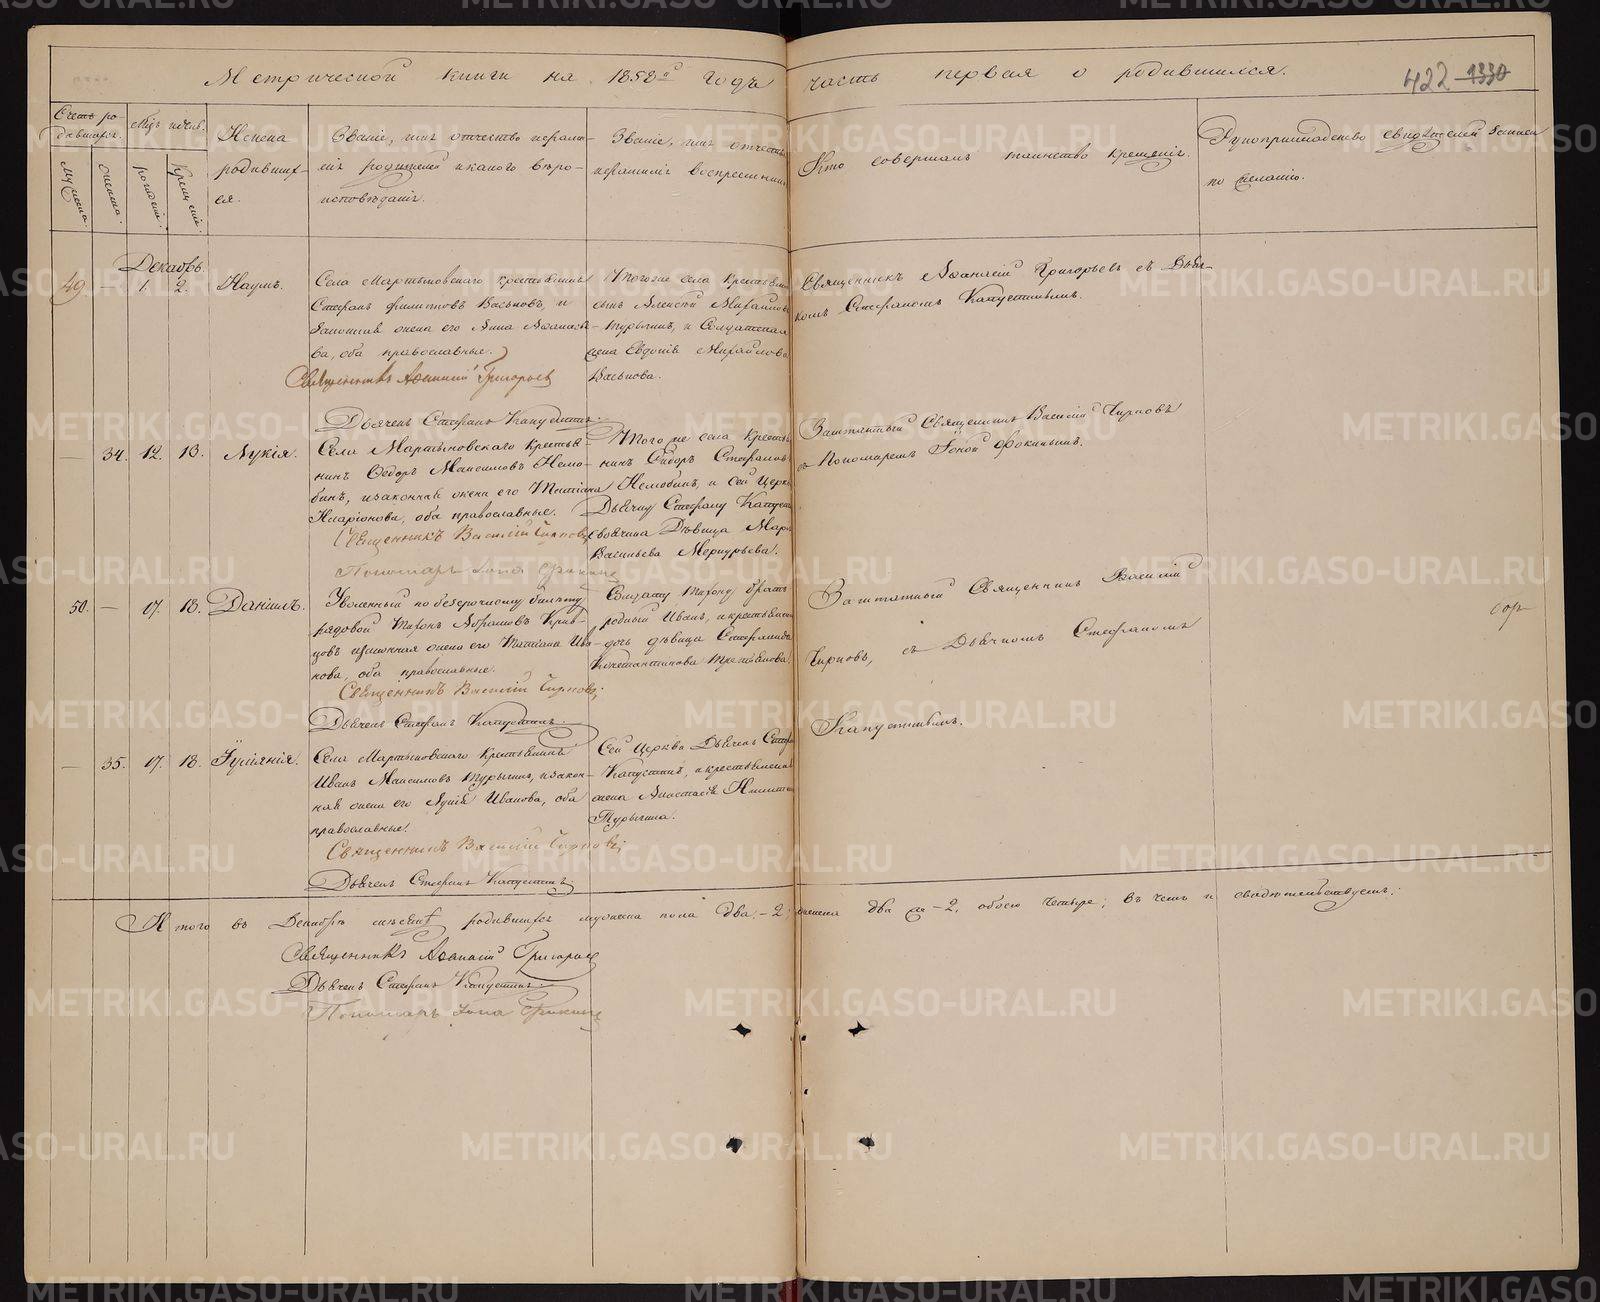 Метрической книги на 1858й годъ часть первая о родившихся.
422 1330
Счетъ ро-
дившихся.
Мѣсяцъ и день.
Имена
родивших-
ся.
Званіе, имя отчество и фами-
лія родителей и какого вѣро-
исповѣданія.
Званіе, имя отчество
и фамилія воспреемник
Кто совершалъ таинство крещенія.
Рукоприкладство свидѣтелей записи
по желанію.
мужеска.
женска.
рожденія.
крещенія.
Декабрь.
49 — 1. 2. Наумъ.
Села Мартыновскаго крестьянинъ
Стефанъ Филиповъ Васьковъ, и
законная жена его Анна Аѳанасье-
ва, оба православные.
Священникъ Аѳанасій Григорьев
Дьячекъ Стефанъ Капустинъ.
Того же села крестьян
инъ Алексѣй Михайловъ
Турыгинъ, и Солдатская
жена Евдокія Михайлова
Васькова.
Священникъ Аѳанасій Григорьевъ съ Дьяч-
комъ Стефаномъ Капустинымъ.
— 34. 12. 13. Лукія.
Села Мартыновскаго крестья-
нинъ Ѳедоръ Максимовъ Нело-
бинъ, и законная жена его Татіана
Иларіонова, оба православные.
Священникъ Василій Чирковъ
Пономарь Іона Фокинъ
Того же села крестья-
нинъ Сидоръ Стефановъ
Нелобинъ, и сей Церкви
Дьячку Стефану Капуст
своячина Дѣвица Марі
Васильева Меркурьева.
Заштатный Священникъ Василій Чирковъ
съ Пономаремъ Іоной Фокинымъ.
50. — 17. 18. Даніилъ.
Уволенный по безсрочному билету
рядовой Тихонъ Абрамовъ Крив-
цовъ и законная жена его Татіана Ива-
нова, оба православные.
Священникъ Василій Чирковъ
Дьячекъ Стефанъ Капустинъ.
Солдату Тихону братъ
родный Иванъ, и крестьянская
дочь дѣвица Стефанида
Константинова Третьякова.
Заштатный Священникъ Василій
Чирковъ, съ Дьячкомъ Стефаномъ
Капустинымъ.
— 35. 17. 18. Іуліянія.
Села Мартыновскаго крестьянинъ
Иванъ Максимовъ Турыгинъ, и закон-
ная жена его Лукія Иванова, оба
православные.
Священникъ Василій Чирковъ
Дьячекъ Стефанъ Капустинъ
Сей Церкви Дьячекъ Стефа
Капустинъ, и крестьянская
жена Анастасія Никитина
Турыгина.
Итого въ Декабрѣ мѣсяцѣ родившихся мужеска пола два, —2; женска два же —2, обоего четыре; въ чемъ и свидѣтельствуемъ:
Священникъ Аѳанасій Григорьев
Дьячекъ Стефанъ Капустинъ.
Пономарь Іона Фокинъ
METRIKI.GASO-URAL.RU